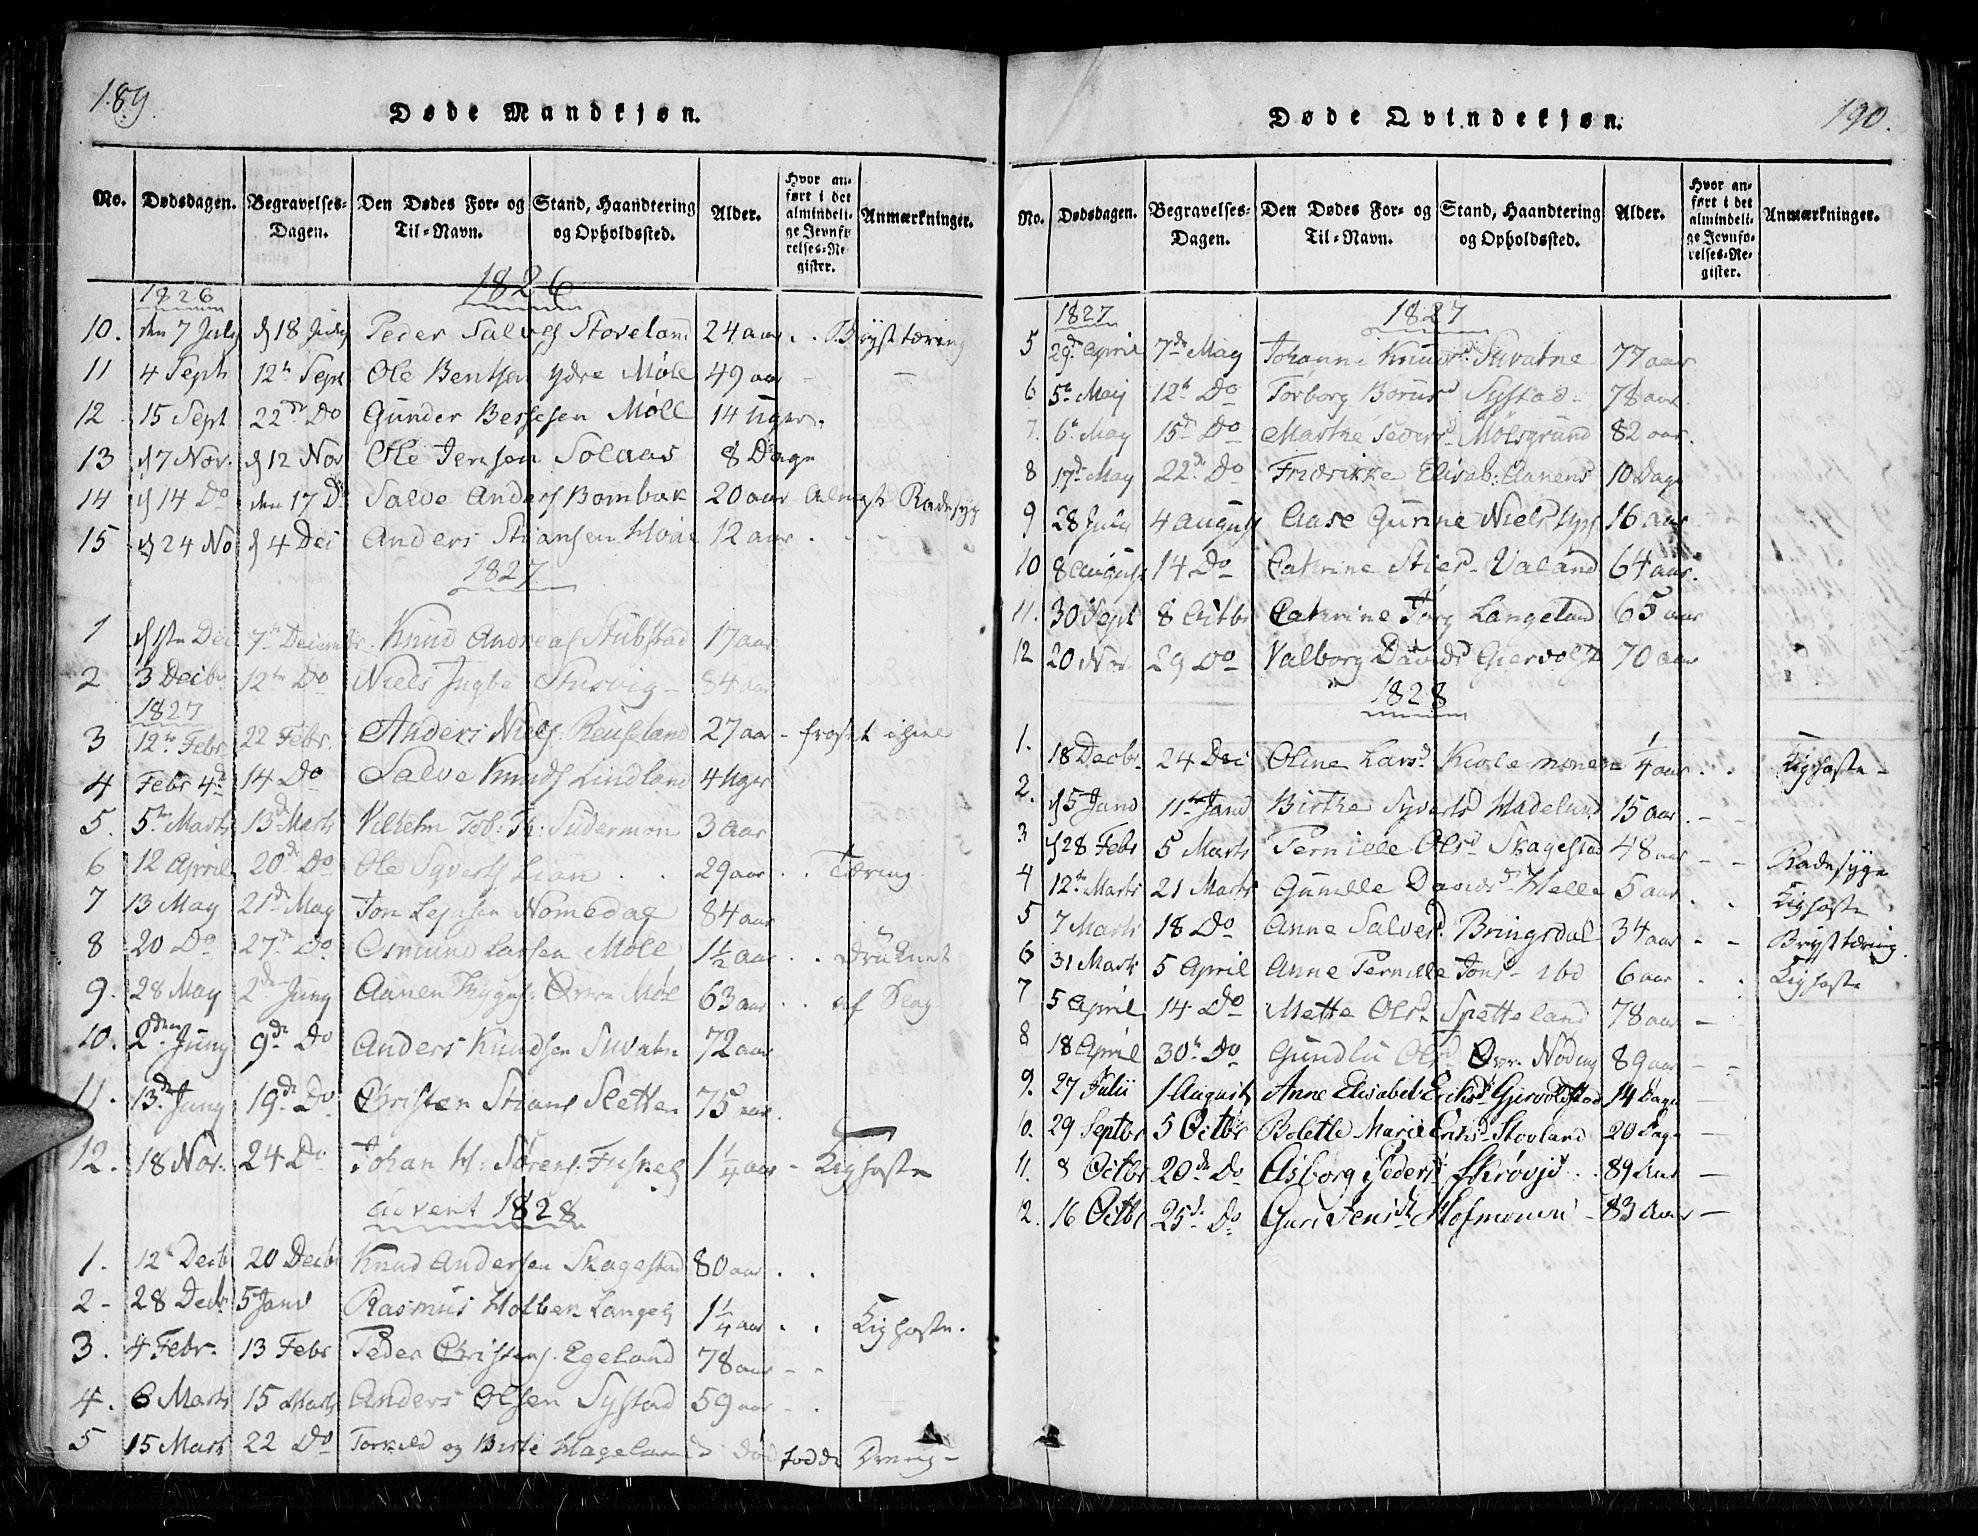 189.
Døde Mandkjøn.
No. Dødsdagen. Begravelses-Dagen. Den Dødes For- og Til-Navn. Stand, Haandtering og Opholdssted. Alder. Hvor anført i det almindelige Jevnførelses-Register. Anmærkninger.
1826
1826
10. den 7 July d 18 July Peder Salves Stoveland 24 aar . . Brysttæring
11 4 Septb 12te Sept Ole Bentsen ydre Møll 49 aar - -
12 15 Sept 22de Do Gunder Bessesen Møll 14 Uger.
13 d 7 Nov. d 12 Nov Ole Jensen Solaas 8 Dage
14 d 14 Do den 17 Do Salve Anders Bombak 20 aar Radesyg
15 d 24 No d 4 Dec Anders Stiansen 12 aar . - -
1827
1 d 1ste Dec 7de Decembr. Knud Andreas Stubstad 17 aar
2 3 Decbr 12te Do Niels 84 aar
1827
3 12te Febr 22 Febr. Anders Niels. Reuseland 27 aar - froset ihiel
4 Febr 4de 14 Do Salve Knuds Lindland 4 Uger
5. 5te Marts 13de Marts Vilhelm Tob: Th: Sudermon 3 Aar
6 12 April 20de Do Ole Syverts Lian . . 29 aar . . Tæring.
7 13 May 21de May Jon Nomedal 84 aar
8 20 Do 27de Do Osmund Larsen Møll 1½ aar . . Druknet
9. 28 May 2den Juny Aanen Trygus: Øvre Møl 63 aar . . af Slag
10. 2den Juny 9de Do Anders Knudsen Suvatn 72 aar
11. 13de Juny 19de Do Christen Stians Sletten 75 aar
12. 18 Nov. 24 Do Johan H: Sørens. 1¼ aar - Kighoste
advent 1828
1. 12te Decb 20 Decbr Knud Andersen Skagestad 80 aar . .
2- 28 Decbr 5 Janv Rasmus Langel 1¼ aar . . Kighoste.
3. 4 Febr. 13 Febr Peder Christens. Egeland 78 aar - -
4. 6 Marts 15 Marts Anders Olsen Systad 59 aar - .
5 15 Mars 22 Do Torkild og Birte Hageland Død fødde Dreng-
190.
Døde Qvindekjøn.
No. Dødsdagen. Begravelses-Dagen. Den Dødes For- og Til-Navn. Stand, Haandtering og Opholdssted. Alder. Hvor anført i det almindelige Jevnførelses-Register. Anmærkninger.
1827 1827
5 29de April 7de May Johanne Knuds. Suvatne 77 aar
6 5te Maij 12te Do Torborg Systad- 78 aar
7. 6te May 15de Do Marthe Peders. Mølsgrund 82 aar.
8 17de May 22de Do Fridrikke Elisab: Aanens 10 Dage
9 28 July 4 August Aase Gurine Niels 16 aar
10 8 August 14 Do Cathrine Stiersd. Valand 64 aar.
11. 30 Sept 8 Octbr Cathrine Torg Langeland 65 aar
12 20 Nov 29 Do Valborg Davids Giervolst 70 aar
1828
1. 18 Decbr. 24 Dec Oline Larsd. Kiolemonen ¼ aar . . Kighoste-
2. d 5 Janv 11te Janv Birthe Syverts Hadeland 15 aar. - -
3 d 28 Febr 5 Marts Pernille Olsd. Skagestad 48 aar - - Radesyge
4 12te Marts 21 Marts Gunille Davids Helle 5 aar . . Kighoste
5 7 Marts 18 Do Anne Salves. Bringsdal 34 aar - - Brysttæring.
6 31 Marts 5 April Anne Pernille Jons- ibd 6 aar . . Kighoste
7 5 April 14 Do Mette Olsd. Spetteland 78 aar -
8 18 April 30te Do Gundlu Olsd Øvr. Nøding 89 aar - -
9. 27 Julii 1 August Anne Elisabet Eriksd Gjervoldstad 14 Dage
0. 29 Septbr 5 Octbr Bolette Marie Eriksd. Stovland 20 Dage -
11. 8 Octbr 20de Do Asborg Peders. 89 Aar -
2. 16 Octbr 25de Do Guri Jensd. Hofmonen - 83 Aar -